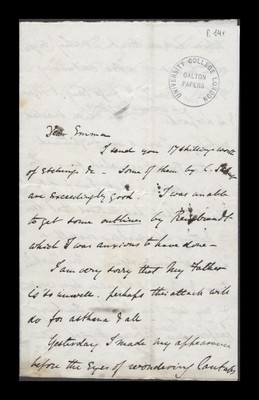 P. 14r
UNIVERSITY COLLEGE LONDON
GALTON
PAPERS
Dear Emma
I send you 17 shillings worth
of etchings &c - Some of them by C.
are exceedingly good I was unable
to get some outlines by Rembrandt
which I was anxious to have done -
I am very sorry that My Father
is so unwell. perhaps this attack will
do for asthma & all
Yesterday I made my appearance
before the Eyes of wondering Cantabs